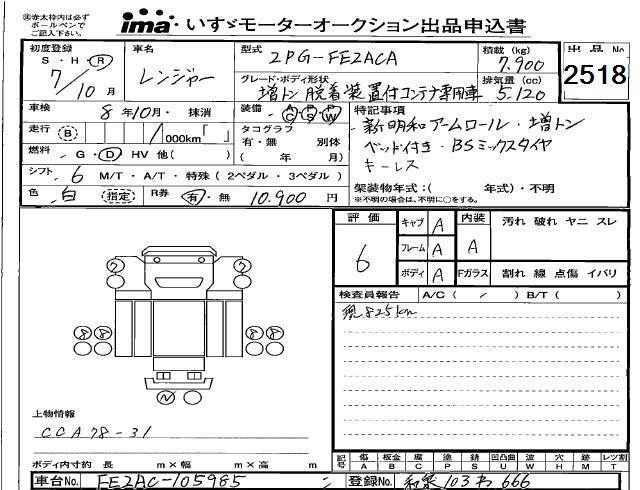 ㊟赤太枠内は必ず
ボールペンで
ご記入下さい。
ima いすゞモーターオークション出品申込書
初度登録
S・H・R
7/10月
車名
レンジャー
型式
2PG-FE2ACA
積載 (kg)
7.900
出品No
2518
グレード・ボディ形状
増トン 脱着装置付コンテナ専用車
排気量 (cc)
5.120
車検
8年10月・ 抹消
装備
AC PS PW
特記事項
・新明和アームロール・増トン
ベッド付き・BSミックスタイヤ
キーレス
走行 B /000km「 」
タコグラフ
有・無 別体
( 年 月)
燃料 ・G・D HV 他( )
シフト 6 M/T・A/T・特殊 (2ペダル・3ペダル)
架装物年式:( 年式)・不明
※架装物年式が不明の場合は、不明に○をする。
色 白 指定
R券 有・無 10.900 円
評価
6
キャブ A
フレーム A
ボディ A
内装
A
Fガラス
汚れ 破れ ヤニ スレ
割れ 線 点傷 イバリ
検査員報告 A/C ( / ) B/T ( )
現825km
2 2
8 8 8 8
N
上物情報
CCA78-31
ボディ内寸約 長 m×幅 m×高 m
記号 傷A 板金B 腐C 塗P 錆S 凹凸曲U 波W 穴H ガラスM レツ割T
車台No. FE2AC-105985
登録No.